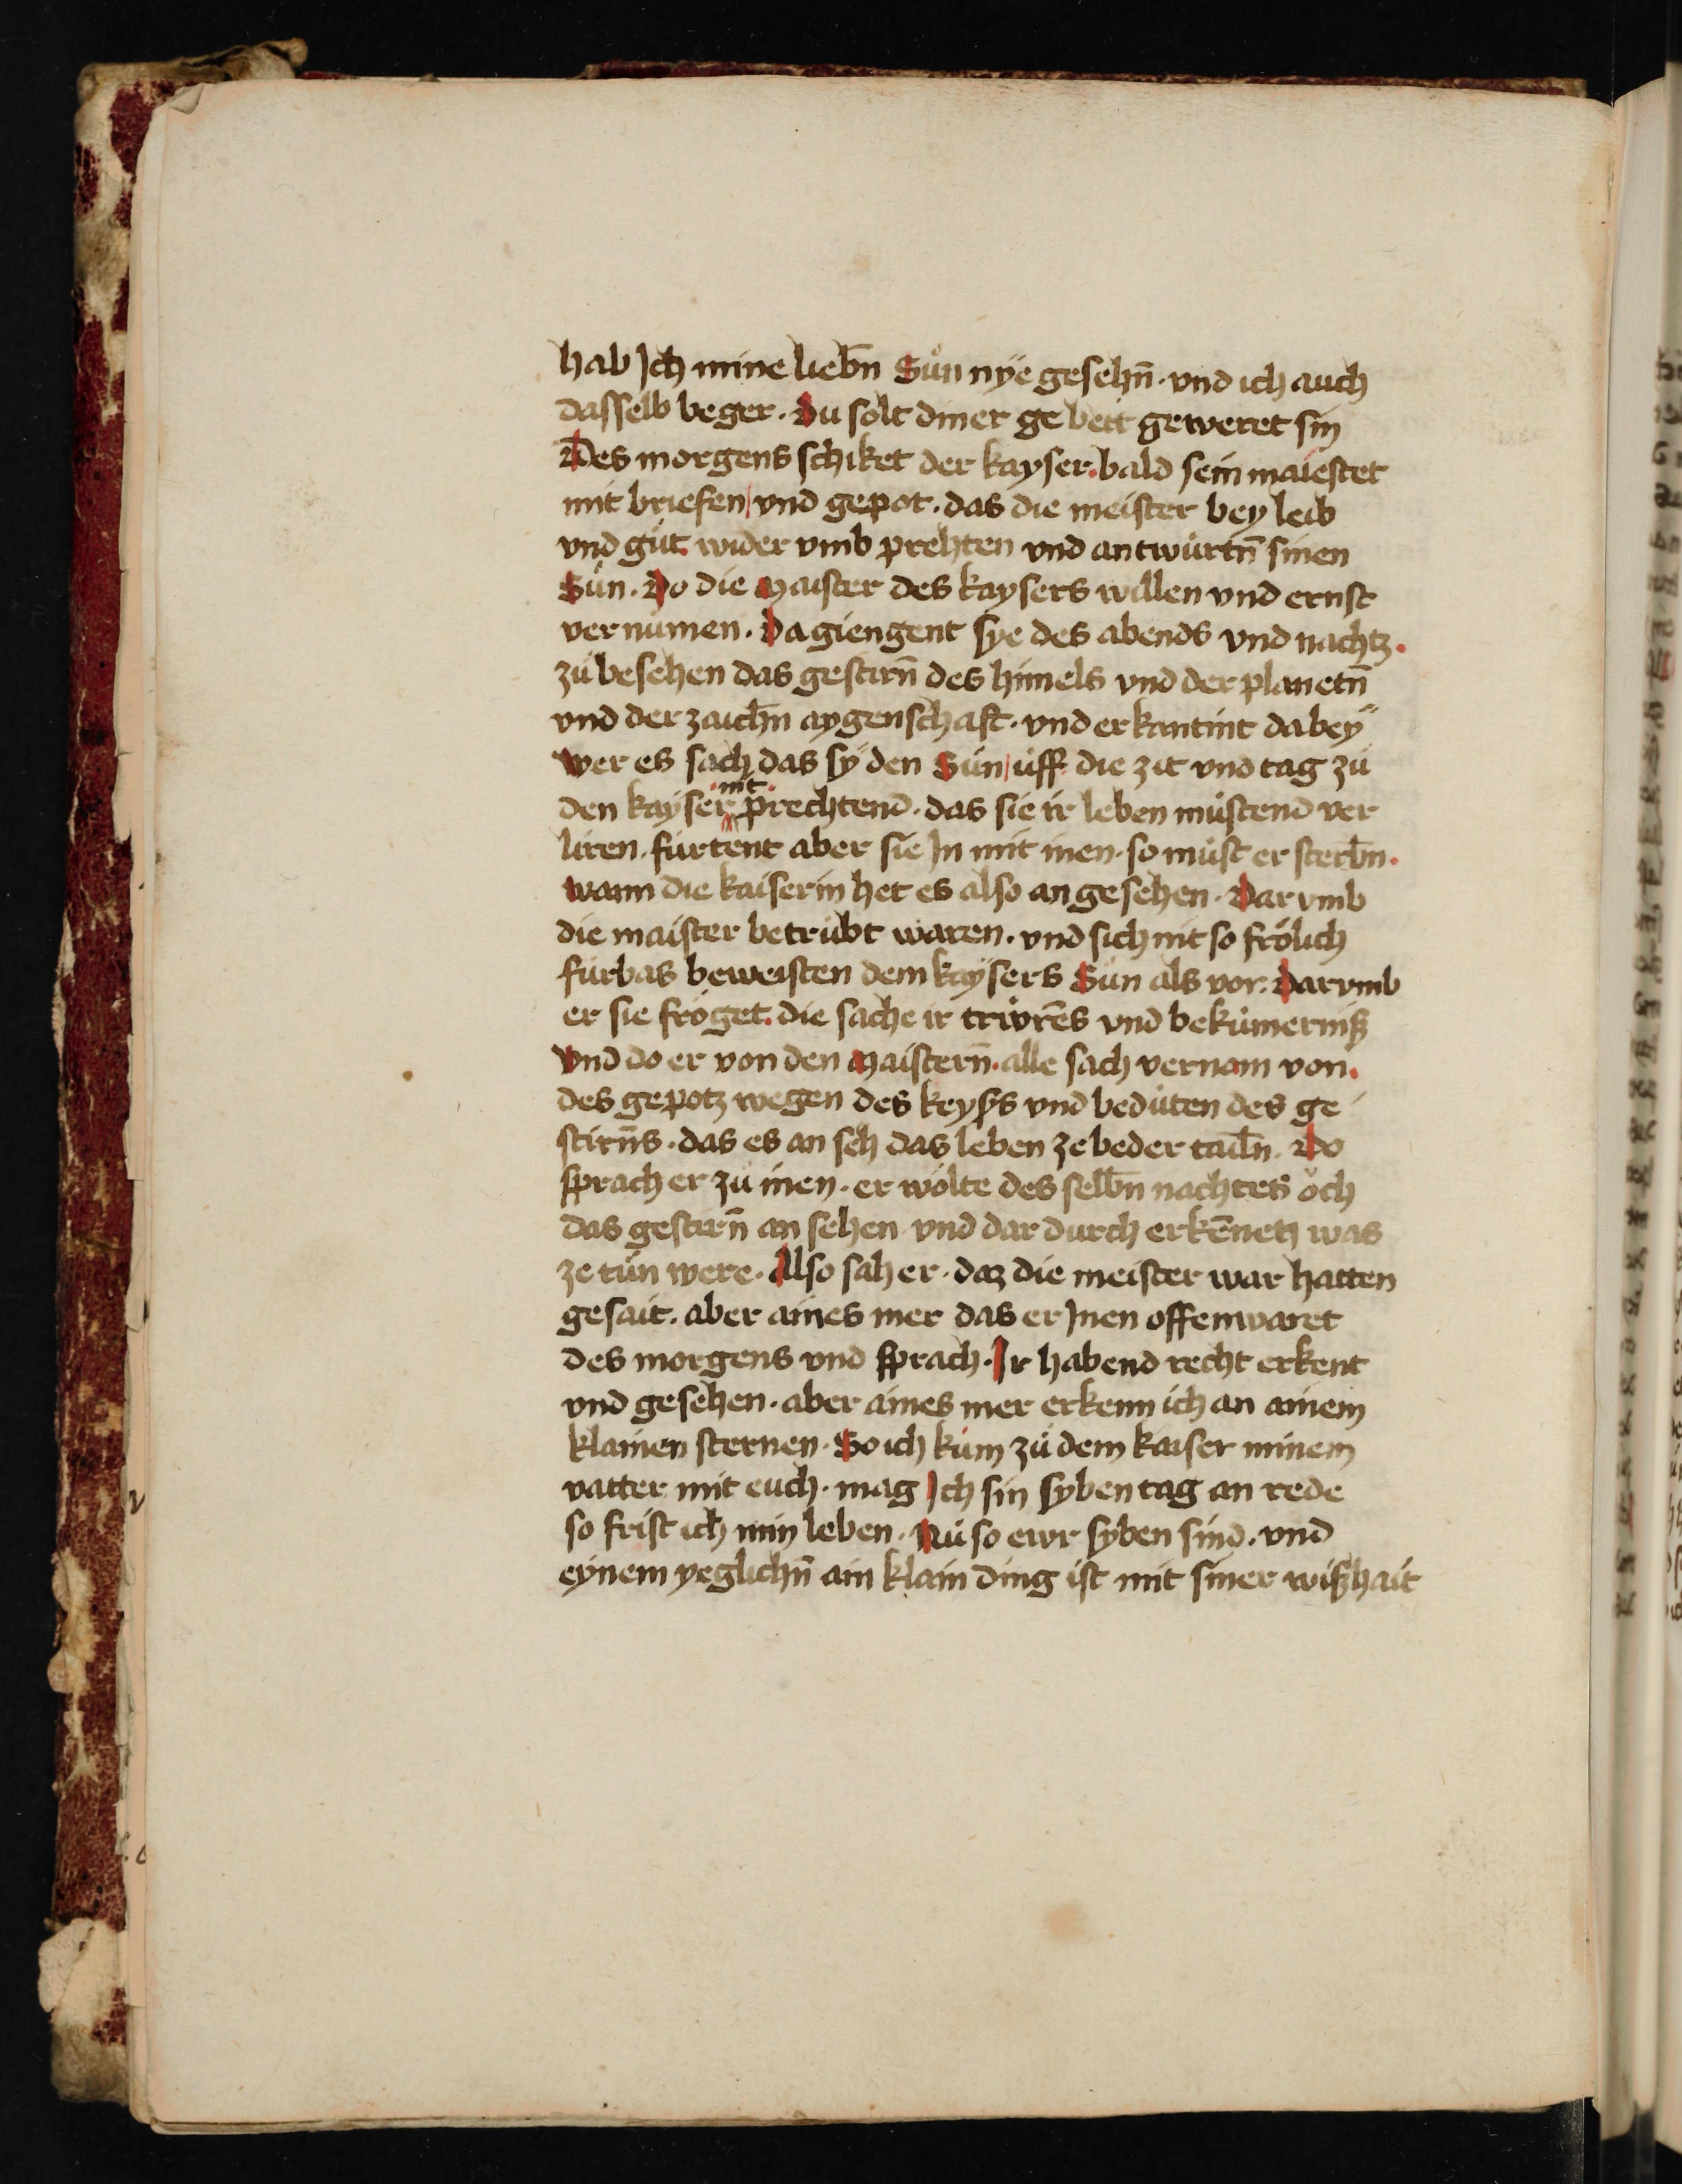 hab Ich mine liebn̄ Sůn nye gesehn̄ · vnd ich auch
dasselb beger · Du solt diner ge bett geweret sin
Des morgens schiket der kayser · bald sein maiestet
mit briefen / vnd gepot · das die meister bey leib
vnd gůt wider vmb prehten vnd antwůrtn̄ sinen
Sůn · Do die Maister des kaysers willen vnd ernst
vernumen · Da giengent sye des abends vnd nachtz ·
zů besehen das gestirn̄ des himels vnd der planetn̄
vnd der zaichn̄ aygenschaft · vnd erkantint dabeÿ
wer es sach das sÿ den Sůn / uff die zit vnd tag zů
den kaÿser · nit · prechtend · das sie ir leben můstend ver
liren · fůrtent aber sie In mit inen · so můst er sterbn̄ ·
wann die kaiserin het es also an gesehen · Darvmb
die maister betrübt waren · vnd sich nit so frölich
fürbas beweisten dem kaÿsers Sůn als vor · Darvmb
er sie fröget · die sache ir trivrēs vnd bekümerniß
vnd do er von den Maistern̄ · alle sach vernam von ·
des gepotz wegen des keysꝰs vnd bedüten des ge
stirn̄s · das es an seh das leben ze beder tailn̄ · Do
sprach er zů inen · er wölte des selbn̄ nachtes och
das gestirn̄ an sehen vnd dar durch erkēnen was
ze tůn were · Also sah er · daz die meister war hatten
gesait · aber aines mer das er Inen offenwaret
des morgens vnd sprach · Ir habend recht erkent
vnd gesehen · aber aines mer erkenn ich an ainem
klainen sternen · So ich kům zů dem kaiser minem
vatter mit euch · mag Ich sin syben tag an rede
so frist ich min leben · Nů so ewr syben sind · vnd
eynem yeglichn̄ ain klain ding ist mit siner wißhait